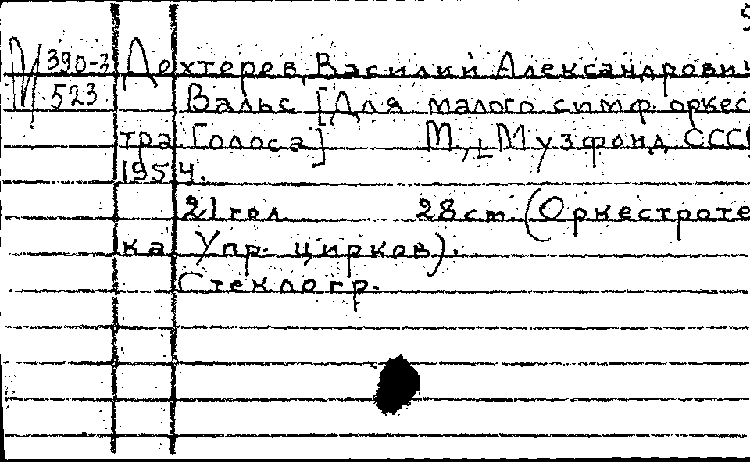 5
М 390-3 Дохтеров, Василий Александрович
523 Вальс [Для малого симф. оркес
тра Голоса] М., Музфонд СССР
1954.
21 гол 28 см. (Оркестроте
ка Упр. цирков).
Стеклогр.